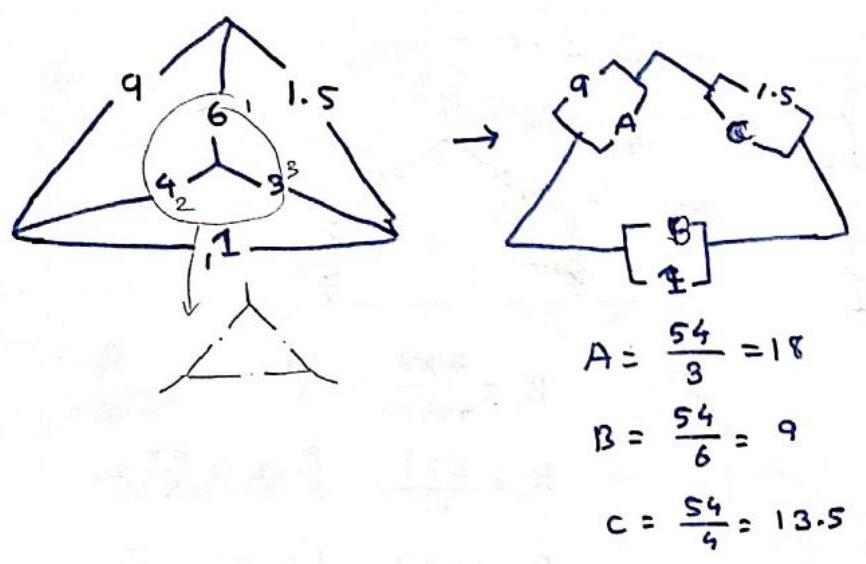 9
1.5
6 1
4 2
3 3
1
→
9
A
1.5
C
B
1
A = 54/3 = 18
B = 54/6 = 9
C = 54/4 = 13.5